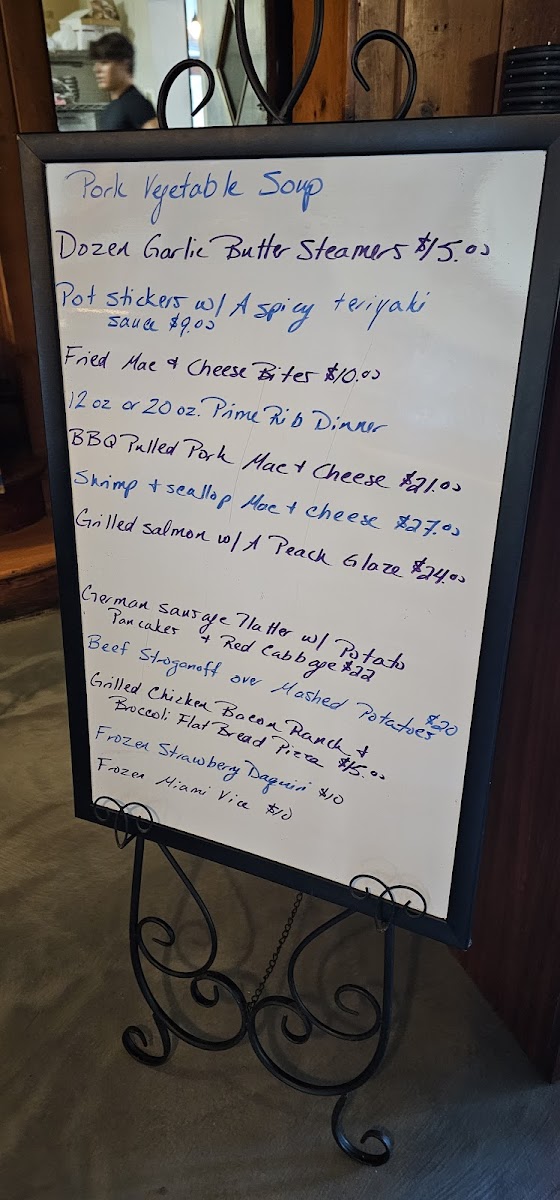 Pork Vegetable Soup
Dozen Garlic Butter Steamers $15.00
Pot stickers w/ A spicy teriyaki
sauce $9.00
Fried Mac & Cheese Bites $10.00
12 oz or 20 oz. Prime Rib Dinner
BBQ Pulled Pork Mac + Cheese $21.00
Shrimp + scallop Mac + cheese $27.00
Grilled salmon w/ A Peach Glaze $24.00
German Sausage Platter w/ Potato
Pancakes + Red Cabbage $22
Beef Stroganoff over Mashed Potatoes $20
Grilled Chicken Bacon Ranch &
Broccoli Flat Bread Pizza $15.00
Frozen Strawberry Daquiri $10
Frozen Miami Vice $10